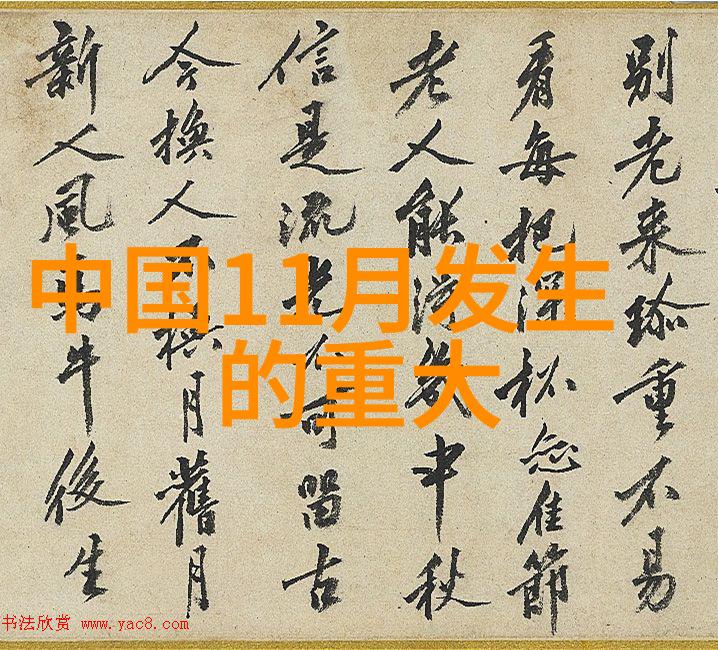 別老来珍重不易
看每把深杯佳節
老人能得幾中秋
信是流光不可留古
今換人不換月舊月
新人風馬牛後生
中国11月发生
的重大
书法欣赏 www.yac8.com